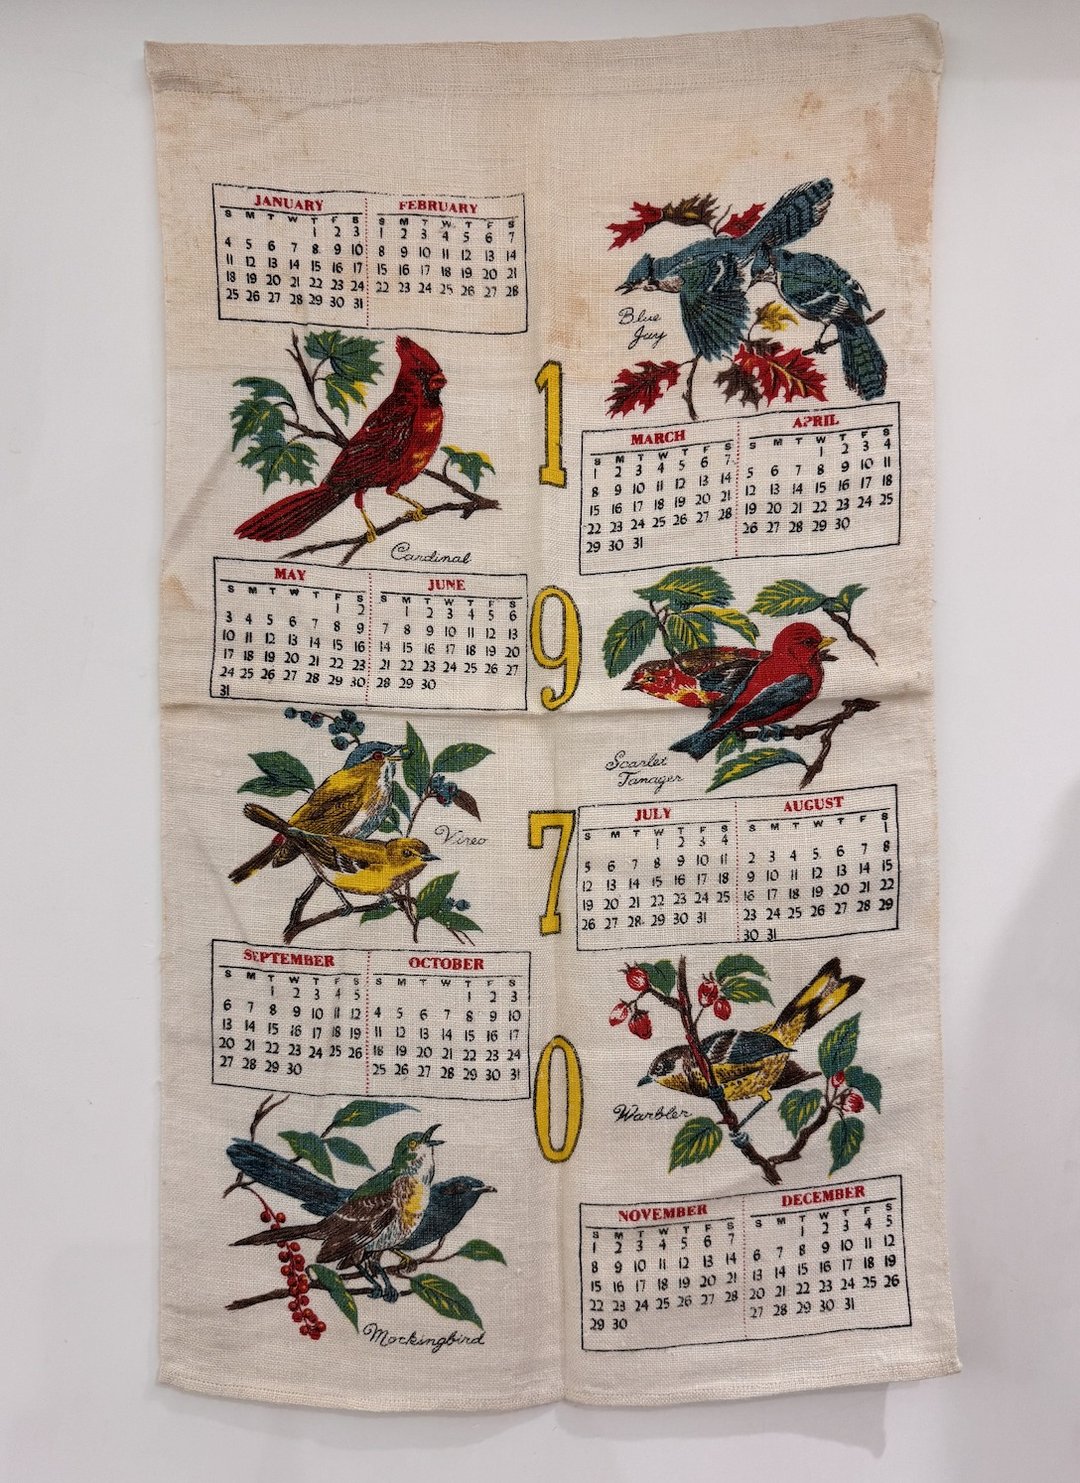 JANUARY
S M T W T F S
1 2 3
4 5 6 7 8 9 10
11 12 13 14 15 16 17
18 19 20 21 22 23 24
25 26 27 28 29 30 31
FEBRUARY
S M T W T F S
1 2 3 4 5 6 7
8 9 10 11 12 13 14
15 16 17 18 19 20 21
22 23 24 25 26 27 28
Blue
Jay
Cardinal
1
MARCH
S M T W T F S
1 2 3 4 5 6 7
8 9 10 11 12 13 14
15 16 17 18 19 20 21
22 23 24 25 26 27 28
29 30 31
APRIL
S M T W T F S
1 2 3 4
5 6 7 8 9 10 11
12 13 14 15 16 17 18
19 20 21 22 23 24 25
26 27 28 29 30
MAY
S M T W T F S
1 2
3 4 5 6 7 8 9
10 11 12 13 14 15 16
17 18 19 20 21 22 23
24 25 26 27 28 29 30
31
JUNE
S M T W T F S
1 2 3 4 5 6
7 8 9 10 11 12 13
14 15 16 17 18 19 20
21 22 23 24 25 26 27
28 29 30
9
Scarlet
Tanager
Vireo
7
JULY
S M T W T F S
1 2 3 4
5 6 7 8 9 10 11
12 13 14 15 16 17 18
19 20 21 22 23 24 25
26 27 28 29 30 31
AUGUST
S M T W T F S
1
2 3 4 5 6 7 8
9 10 11 12 13 14 15
16 17 18 19 20 21 22
23 24 25 26 27 28 29
30 31
SEPTEMBER
S M T W T F S
1 2 3 4 5
6 7 8 9 10 11 12
13 14 15 16 17 18 19
20 21 22 23 24 25 26
27 28 29 30
OCTOBER
S M T W T F S
1 2 3
4 5 6 7 8 9 10
11 12 13 14 15 16 17
18 19 20 21 22 23 24
25 26 27 28 29 30 31
0
Warbler
Mockingbird
NOVEMBER
S M T W T F S
1 2 3 4 5 6 7
8 9 10 11 12 13 14
15 16 17 18 19 20 21
22 23 24 25 26 27 28
29 30
DECEMBER
S M T W T F S
1 2 3 4 5
6 7 8 9 10 11 12
13 14 15 16 17 18 19
20 21 22 23 24 25 26
27 28 29 30 31